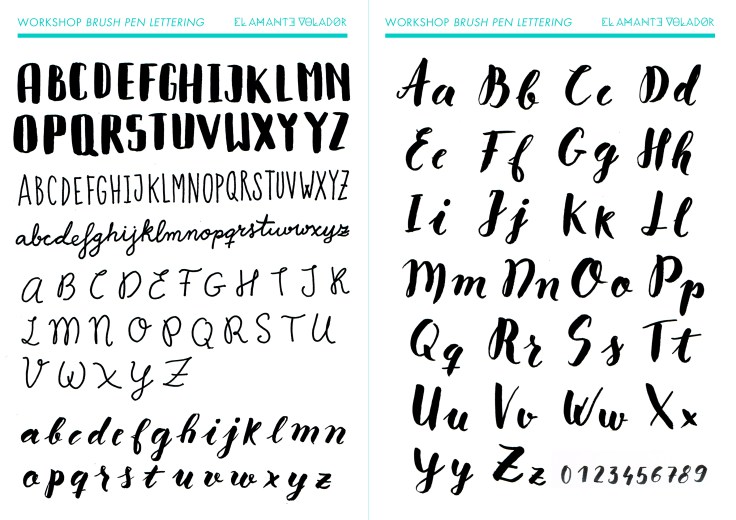 WORKSHOP BRUSH PEN LETTERING EL AMANTE VOLADOR
ABCDEFGHIJKLMN
OPQRSTUVWXYYZ
ABCDEFGHIJKLMNOPQRSTUVWXYZ
abcdefghijklmnopqrstuvwxyz
A B C D E F G H I J K
L M N O P Q R S T U
V W X Y Z
a b c d e f g h i j k l m n
o p q r s t u v w x y z
WORKSHOP BRUSH PEN LETTERING EL AMANTE VOLADOR
Aa Bb Cc Dd
Ee Ff Gg Hh
Ii Jj Kk Ll
Mm Nn Oo Pp
Qq Rr Ss Tt
Uu Vv Ww Xx
Yy Zz 0123456789